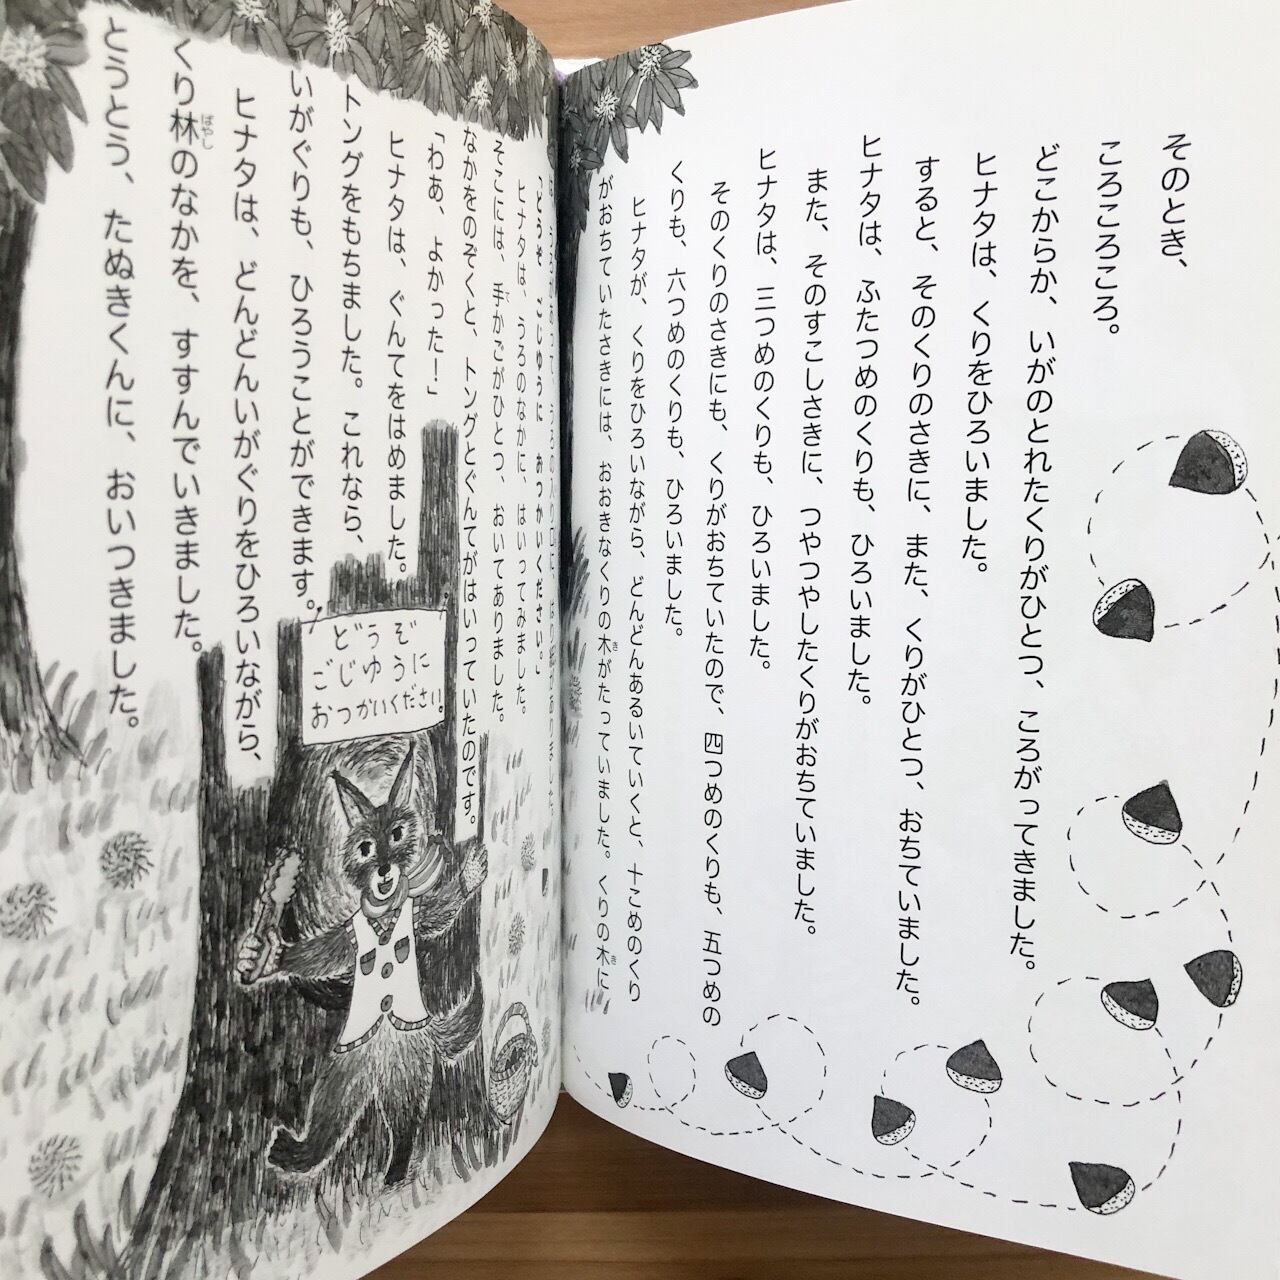 そのとき、
ころころころ。
どこからか、いがのとれたくりがひとつ、ころがってきました。
ヒナタは、くりをひろいました。
すると、そのくりのさきに、また、くりがひとつ、おちていました。
ヒナタは、ふたつめのくりも、ひろいました。
また、そのすこしさきに、つやつやしたくりがおちていました。
ヒナタは、三つめのくりも、ひろいました。
そのくりのさきにも、くりがおちていたので、四つめのくりも、五つめの
くりも、六つめのくりも、ひろいました。
ヒナタが、くりをひろいながら、どんどんあるいていくと、十こめのくり
がおちていたさきには、おおきなくりの木がたっていました。くりの木に
「どうぞ ごじゆうに おつかいください。」
ヒナタは、うろのなかに、はいってみました。
そこには、手かごがひとつ、おいてありました。
なかをのぞくと、トングとぐんてがはいっていたのです。
「わあ、よかった!」
ヒナタは、ぐんてをはめました。
トングをもちました。これなら、
いがぐりも、ひろうことができます。
ヒナタは、どんどんいがぐりをひろいながら、
くり林のなかを、すすんでいきました。
とうとう、たぬきくんに、おいつきました。
どうぞ
ごじゆうに
おつかいください。